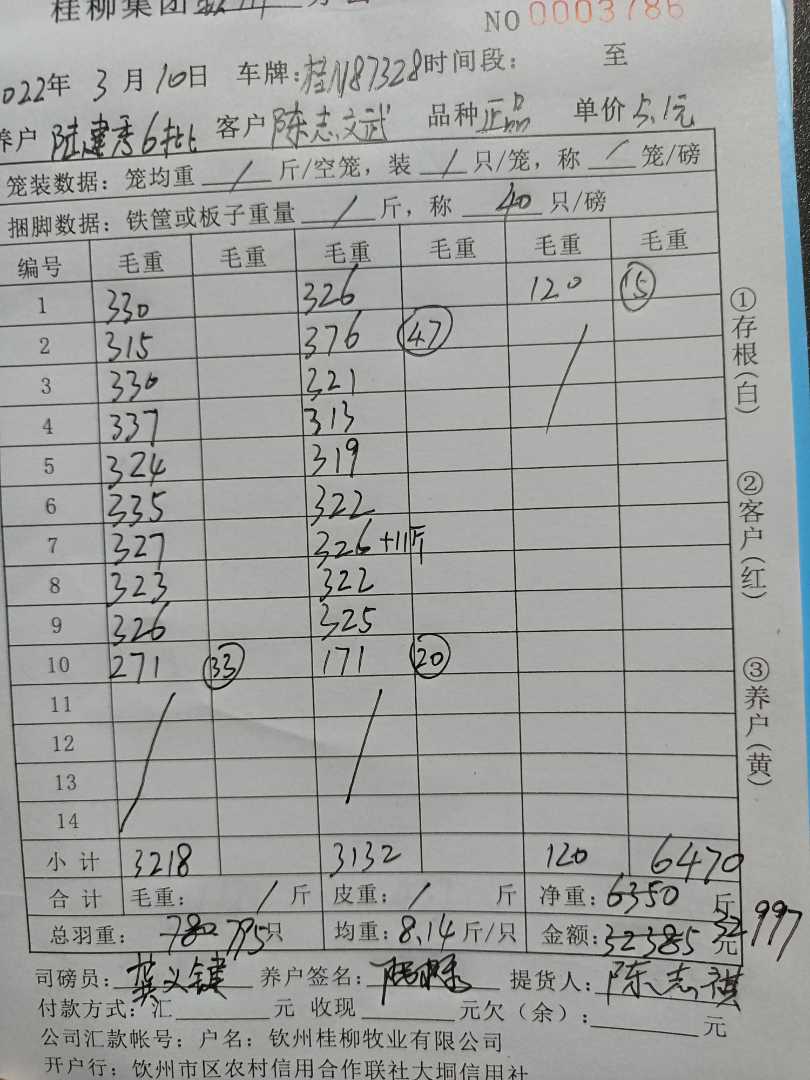 桂柳集团 NO 0003786
2022年 3 月 10 日 车牌:桂N87328 时间段: 至
养户 陆建秀6批 客户 陈志文武 品种 正品 单价 5.1元
笼装数据: 笼均重 / 斤/空笼, 装 / 只/笼, 称 / 笼/磅
捆脚数据: 铁筐或板子重量 / 斤, 称 40 只/磅
编号 毛重 毛重 毛重 毛重 毛重 毛重
1 330 326 120 15
2 315 376 47
3 330 321
4 337 313
5 324 319
6 335 322
7 327 326+11斤
8 323 322
9 326 325
10 271 33 171 20
11
12
13
14
小计 3218 3132 120 6470
合计 毛重: / 斤 皮重: / 斤 净重: 6350 斤
总羽重: 780 795只 均重: 8.14斤/只 金额: 32385 32997元
司磅员: 龚义键 养户签名: 提货人: 陈志祺
付款方式: 汇 元 收现 元欠(余): 元
公司汇款帐号: 户名: 钦州桂柳牧业有限公司
开户行: 钦州市区农村信用合作联社大垌信用社
①存根(白)
②客户(红)
③养户(黄)